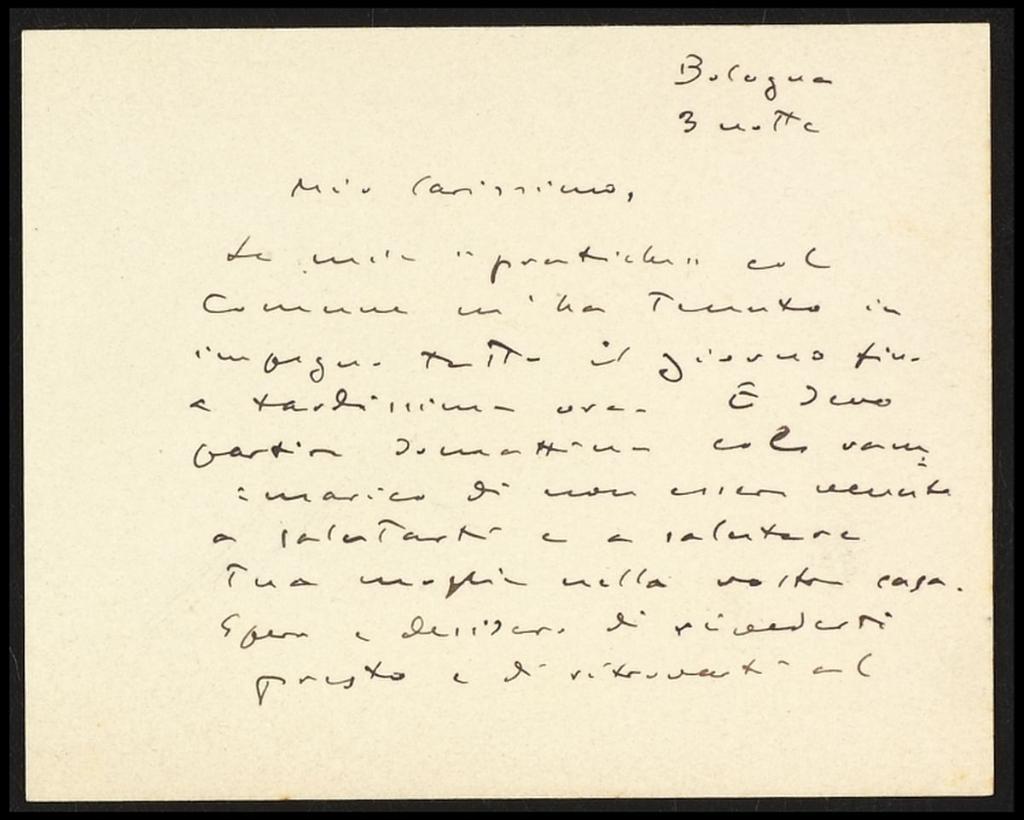 Bologna
3 notte
Mio Carissimo,
La mia "pratiche" col
Comune m'ha tenuto in
impegno tutto il giorno fino
a tardissima ora. E devo
partire domattina col ram=
=marico di non essere venuto
a salutarti e a salutare
Tua moglie nella vostra casa.
Spero e desidero di rivederti
presto e di ritrovarti al